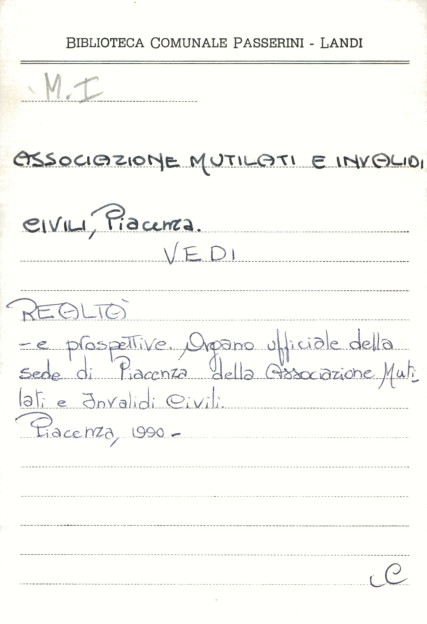 BIBLIOTECA COMUNALE PASSERINI - LANDI
M.I
ASSOCIAZIONE MUTILATI E INVALIDI
CIVILI, Piacenza.
VEDI
REALTÀ
- e prospettive. Organo ufficiale della
sede di Piacenza della Associazione Muti-
lati e Invalidi Civili.
Piacenza, 1990 -
C